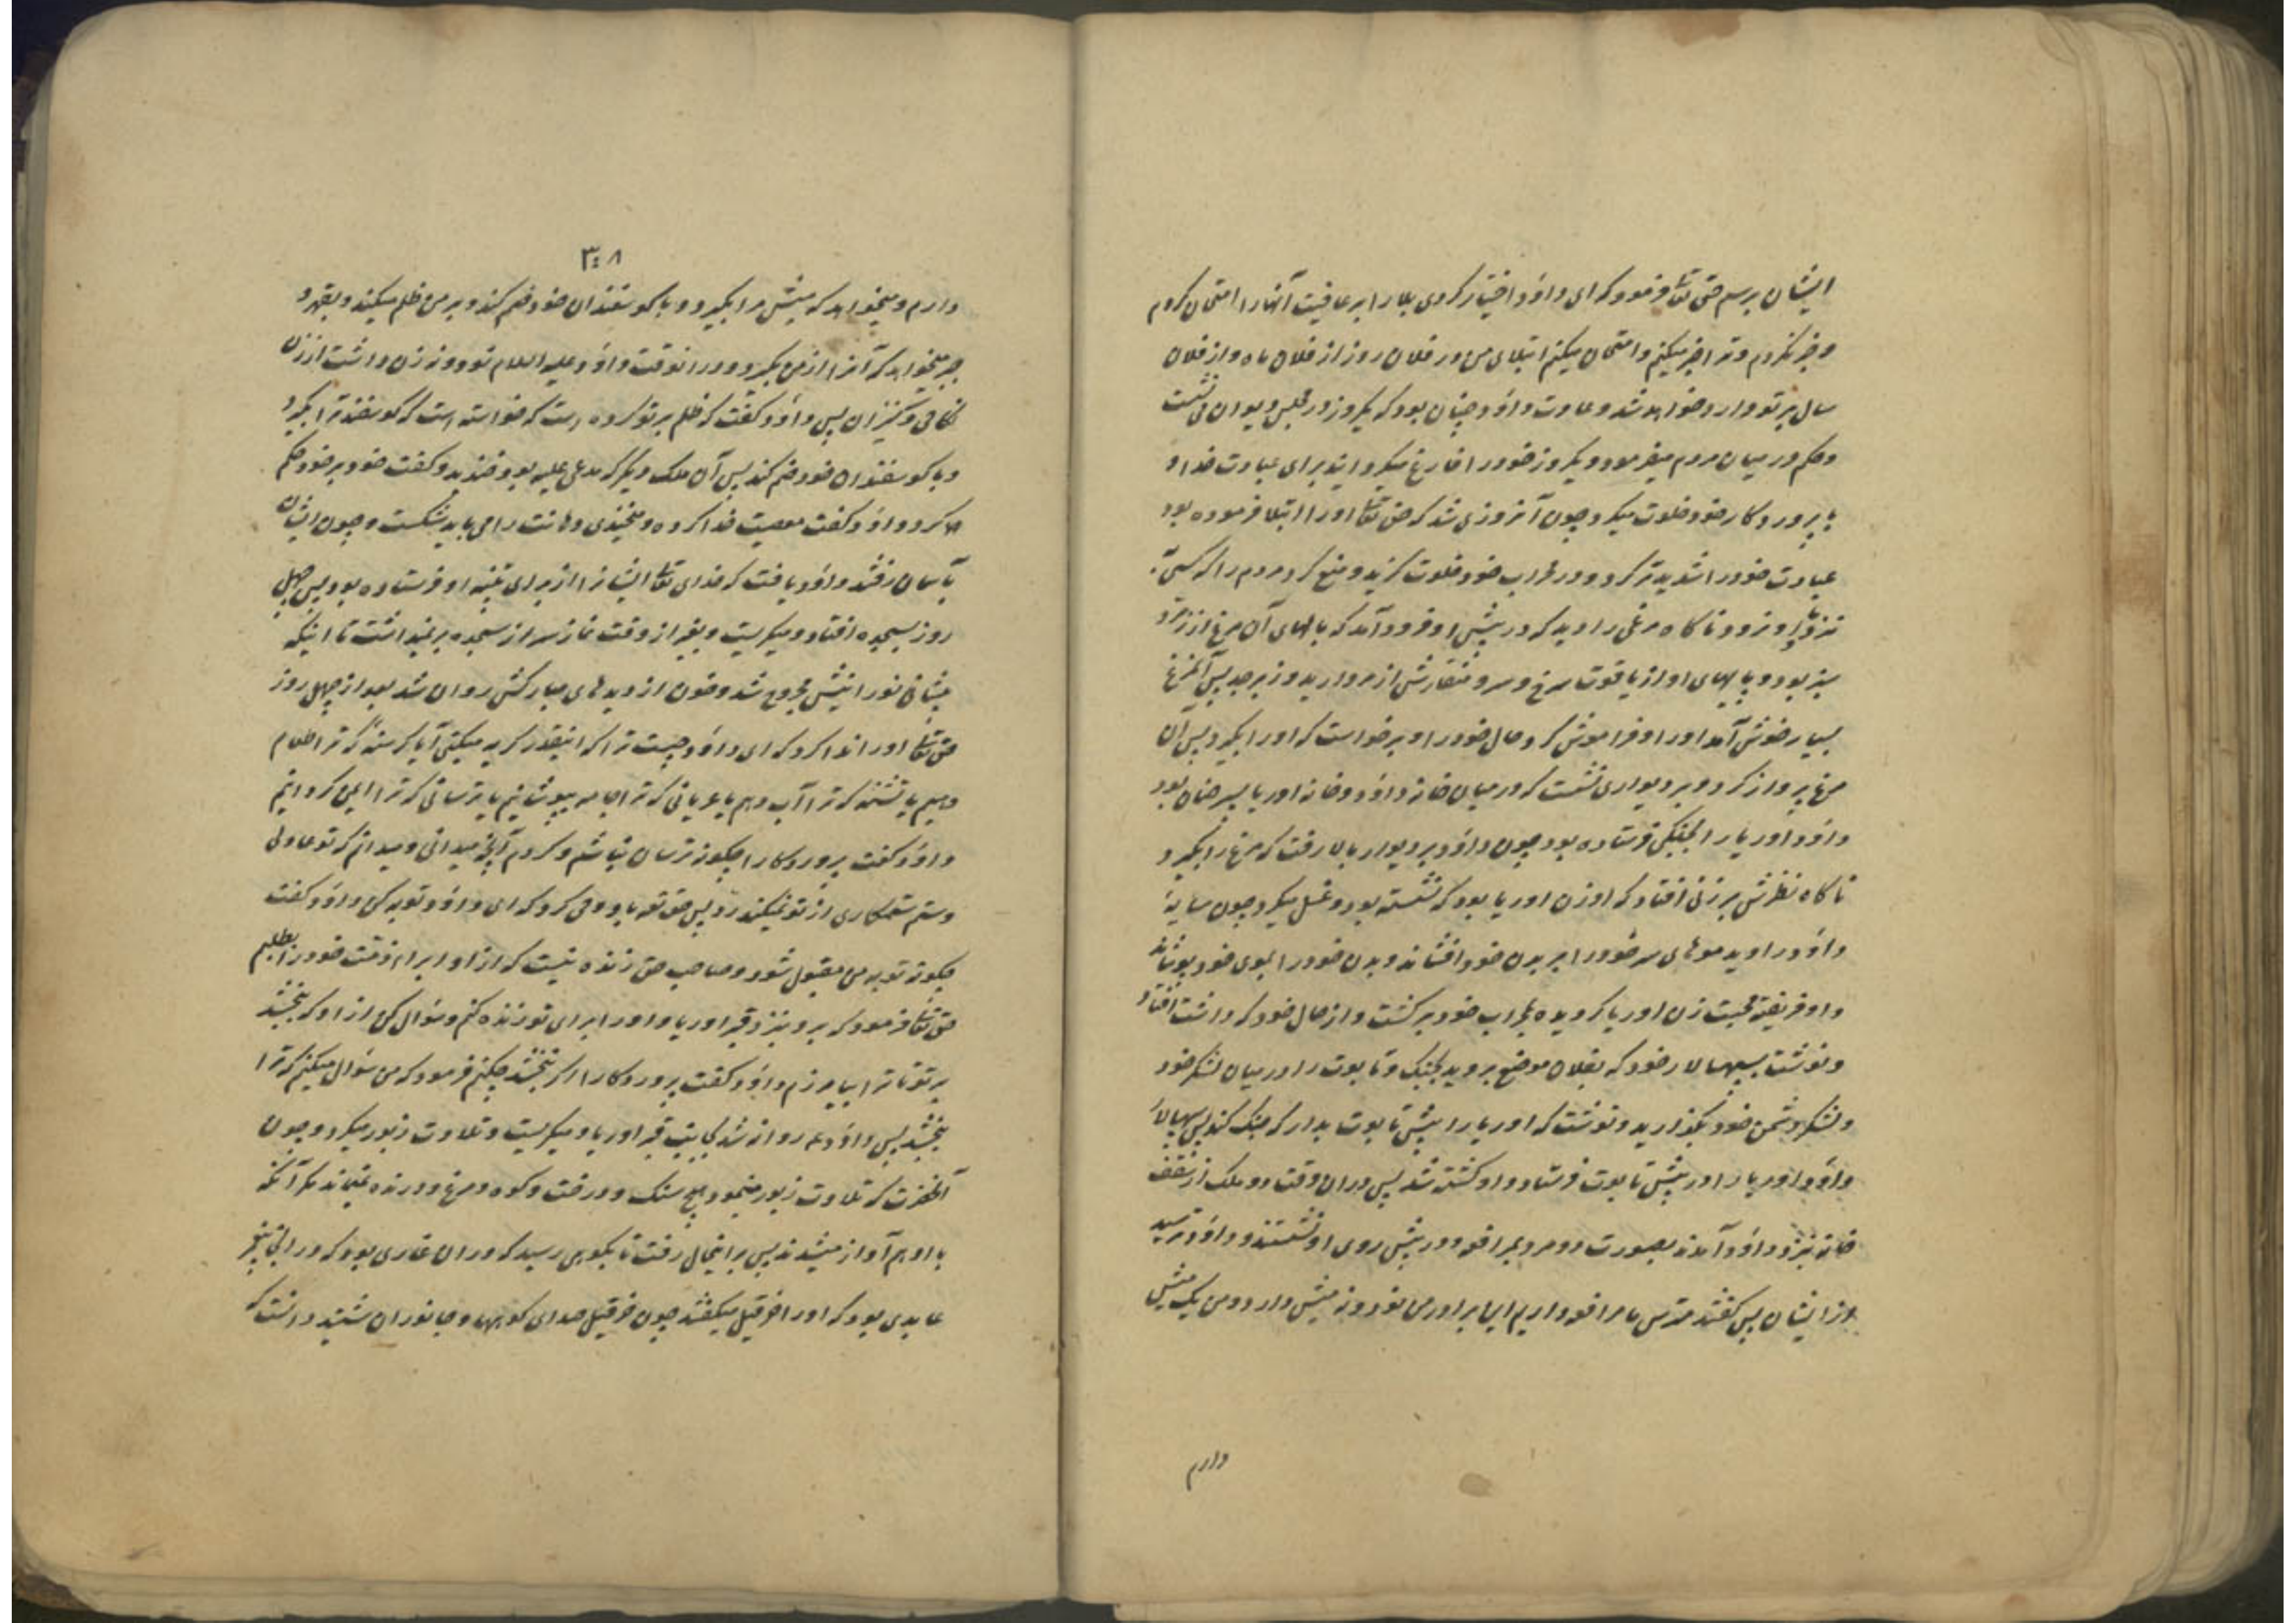 ایشان برسم حق تعالی فرمود که ای داود اختیار کردی بلا را بر عافیت آنها را امتحان کردم
و خبر نکردم و ترا خبر میکنم و امتحان میکنم ابتلای من در فلان روز از فلان ماه و از فلان
سال بر تو وارد خواهد شد و عادت داود چنان بود که یکروز در مجلس دیوان می نشست
و حکم در میان مردم میفرمود و یکروز خود را فارغ میگردانید برای عبادت خدا و
با پروردکار خود خلوت میکرد چون آنروزی شد که حق تعالی او را ابتلا فرموده بود
عبادت خود را شدیدتر کرد و در محراب خود خلوت کزید و منع کرد مردم را که کسی
نزد او نرود ناکاه مرغی را دید که در پیش او فرود آمد که بالهای آن مرغ از زمرد
سبز بود و پاهای او از یاقوت سرخ و سر و منقارش از مروارید و زبرجد پس آنمرغ
بسیار خوش آمد او را و فراموش کرد حال خود را و برخواست که او را بگیرد پس آن
مرغ پرواز کرد و بر دیواری نشست که در میان خانه داود و خانه اوریا پسر حنان بود
داود اوریا را بجنکی فرستاده بود چون داود بر دیوار بالا رفت که مرغ را بگیرد
ناکاه نظرش بر زنی افتاد که او زن اوریا بود که نشسته بود و غسل میکرد چون سایهٔ
داود را دید موهای سر خود را بر بدن خود افشاند و بدن خود را بموی خود پوشانید
داود فریفته محبت زن اوریا کردیده بمحراب خود برکشت و از حال خود که داشت افتاد
و نوشت بسپهسالار خود که بفلان موضع بروید بجنک و تابوت را در میان لشکر خود
و لشکر دشمن خود بگذارید و نوشت که اوریا را پیش تابوت بدار که جنک کند پس سپهسالار
داود اوریا را در پیش تابوت فرستاد و او کشته شد پس در ان وقت دو ملک از سقف
خانه بنزد داود آمدند بصورت دو مرد بمرافعه و در پیش روی او نشستند و داود ترسید
از ایشان پس کفتند مترس ما مرافعه داریم این برادر من نود و نه میش دارد و من یک میش
دارم
۳۰۸
دارم و میخواهد که میش مرا بگیرد و با کوسفندان خود ضم کند و بر من ظلم میکند و بقهر و
جبر میخواهد که آنرا از من بگیرد و در انوقت داود علیه السلام نود و نه زن داشت از زن
نکاحی و کنیزان پس داود کفت که ظلم بر تو کرده است که خواسته است که کوسفند ترا بگیرد
و با کوسفندان خود ضم کند پس آن ملک دیگر که مدعی علیه بود خندید و کفت خود بر خود حکم
کرد داود کفت معصیت خدا کرده و میخندی دهانت را می باید شکست و چون ایشان
بآسمان رفتند داود یافت که خدای تعالی ایشانرا از برای تنبیه او فرستاده بود پس چهل
روز بسجده افتاد و میکریست و بغیر از وقت نماز سر از سجده برنمیداشت تا اینکه
پیشانی نورانیش مجروح شد و خون از دیدهای مبارکش روان شد بعد از چهل روز
حق تعالی او را ندا کرد که ای داود چیست ترا که اینقدر کریه میکنی آیا کرسنهٔ که ترا طعام
دهم یا تشنهٔ که ترا آب دهم یا عریانی که ترا جامه بپوشانم یا ترسانی که ترا ایمن کردانم
داود کفت پروردکارا چکونه ترسان نباشم و کردم آنچه میدانی و میدانم که تو عادلی
و ستم ستمکاری از تو نمیکذرد پس حق تعه باو وحی کرد که ای داود توبه کن داود کفت
چکونه توبه من مقبول شود و صاحب حق زنده نیست که از او ابراء ذمت خود را بطلبم
حق تعالی فرمود که برو بنزد قبر اوریا و او را برای تو زنده کنم و سؤال کن از او که ببخشد
بر تو تا ترا بیامرزم داود کفت پروردکارا اگر نبخشد چکنم فرمود که من سؤال میکنم که ترا
ببخشد پس داود ع روانه شد بجانب قبر اوریا و میکریست و تلاوت زبور میکرد و چون
آنحضرت که تلاوت زبور مینمود هیچ سنک و درخت و کوه و مرغ و درنده نمیماند مکر آنکه
با او هم آواز میشدند پس بر اینحال رفت تا بکوهی رسید که در ان غاری بود که در آنجا پیغمبر
عابدی بود که او را حزقیل میکفتند چون حزقیل صدای کوهها و جانوران شنید دانست که